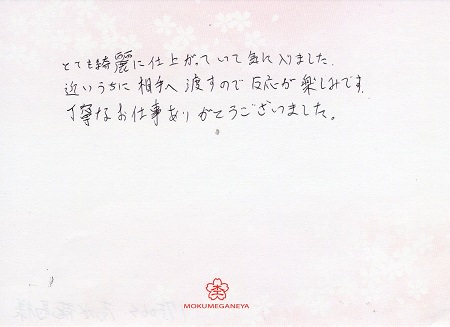 とても綺麗に仕上がっていて気に入りました.
近いうちに相手へ渡すので反応が楽しみです.
丁寧なお仕事ありがとうございました。
MOKUMEGANEYA